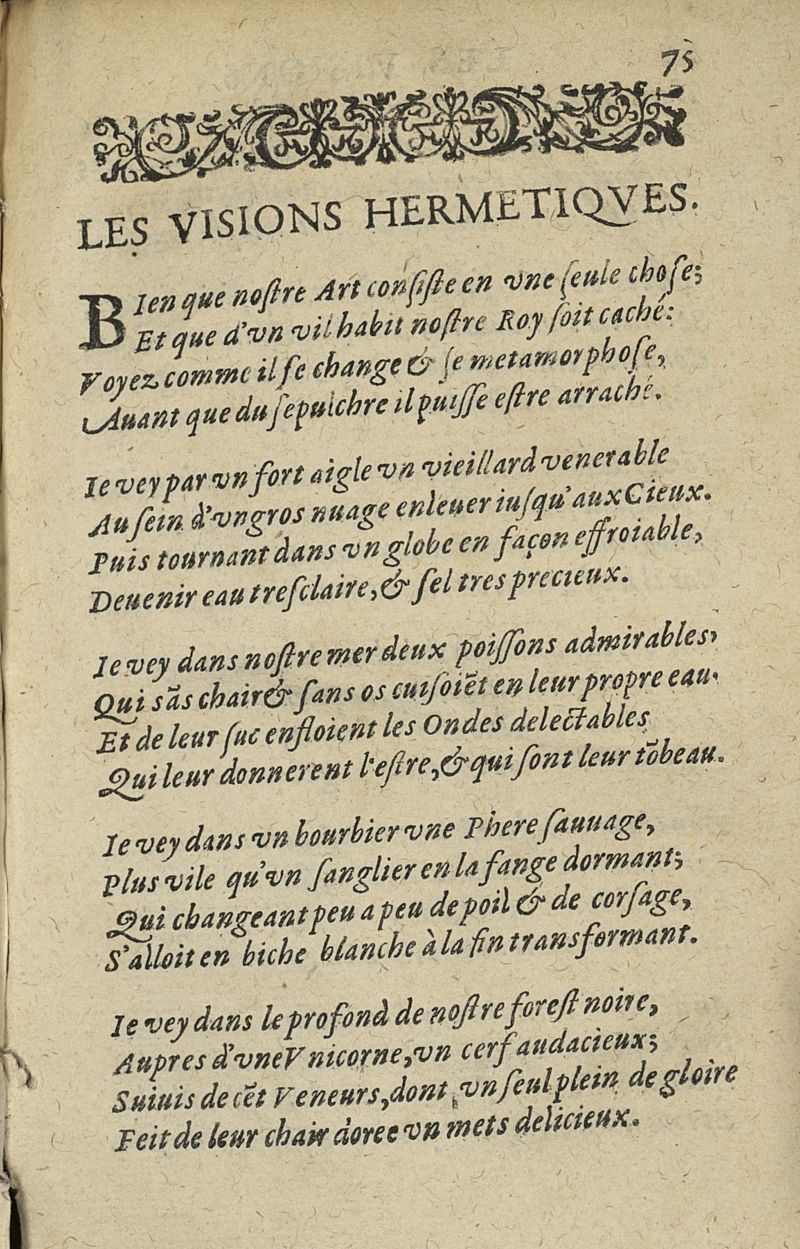 75
LES VISIONS HERMETIQVES.
BIen que noſtre Art conſiſte en vne ſeule choſe;
Et que d'vn vil habit noſtre Roy ſoit caché:
Voyez comme il ſe change & ſe metamorphoſe,
Auant que du ſepulchre il puiſſe eſtre arraché.
Ie vey par vn fort aigle vn vieillard venerable
Au ſein d'vn gros nuage enleuer iuſqu'aux Cieux.
Puis tournant dans vn globe en façon effroiable,
Deuenir eau treſclaire, & ſel tres precieux.
Ie vey dans noſtre mer deux poiſſons admirables,
Qui sãs chair & ſans os cuiſoiẽt en leur propre eau.
Et de leur ſuc enfloient les Ondes delectables
Qui leur donnerent l'eſtre, & qui ſont leur tõbeau.
Ie vey dans vn bourbier vne Phere ſauuage,
Plus vile qu'vn ſanglier en la fange dormant;
Qui changeant peu a peu de poil & de corſage,
S'alloit en biche blanche à la fin transformant.
Ie vey dans le profond de noſtre foreſt noire,
Aupres d'vne Vnicorne, vn cerf audacieux;
Suiuis de cẽt Veneurs, dont vn ſeul plein de gloire
Feit de leur chair doree vn mets delicieux.